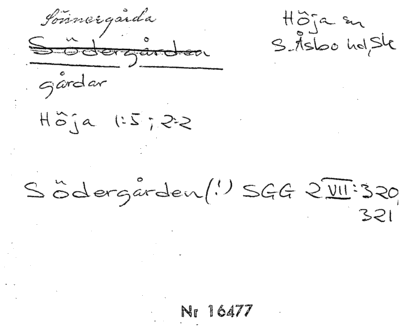 Sönnergårda
Södergården
Höja sn
S. Åsbo hd, Sk
gårdar
Höja 1:5 ; 2:2
Södergården (!) SGG 2 VII: 320,
321
Nr 16477